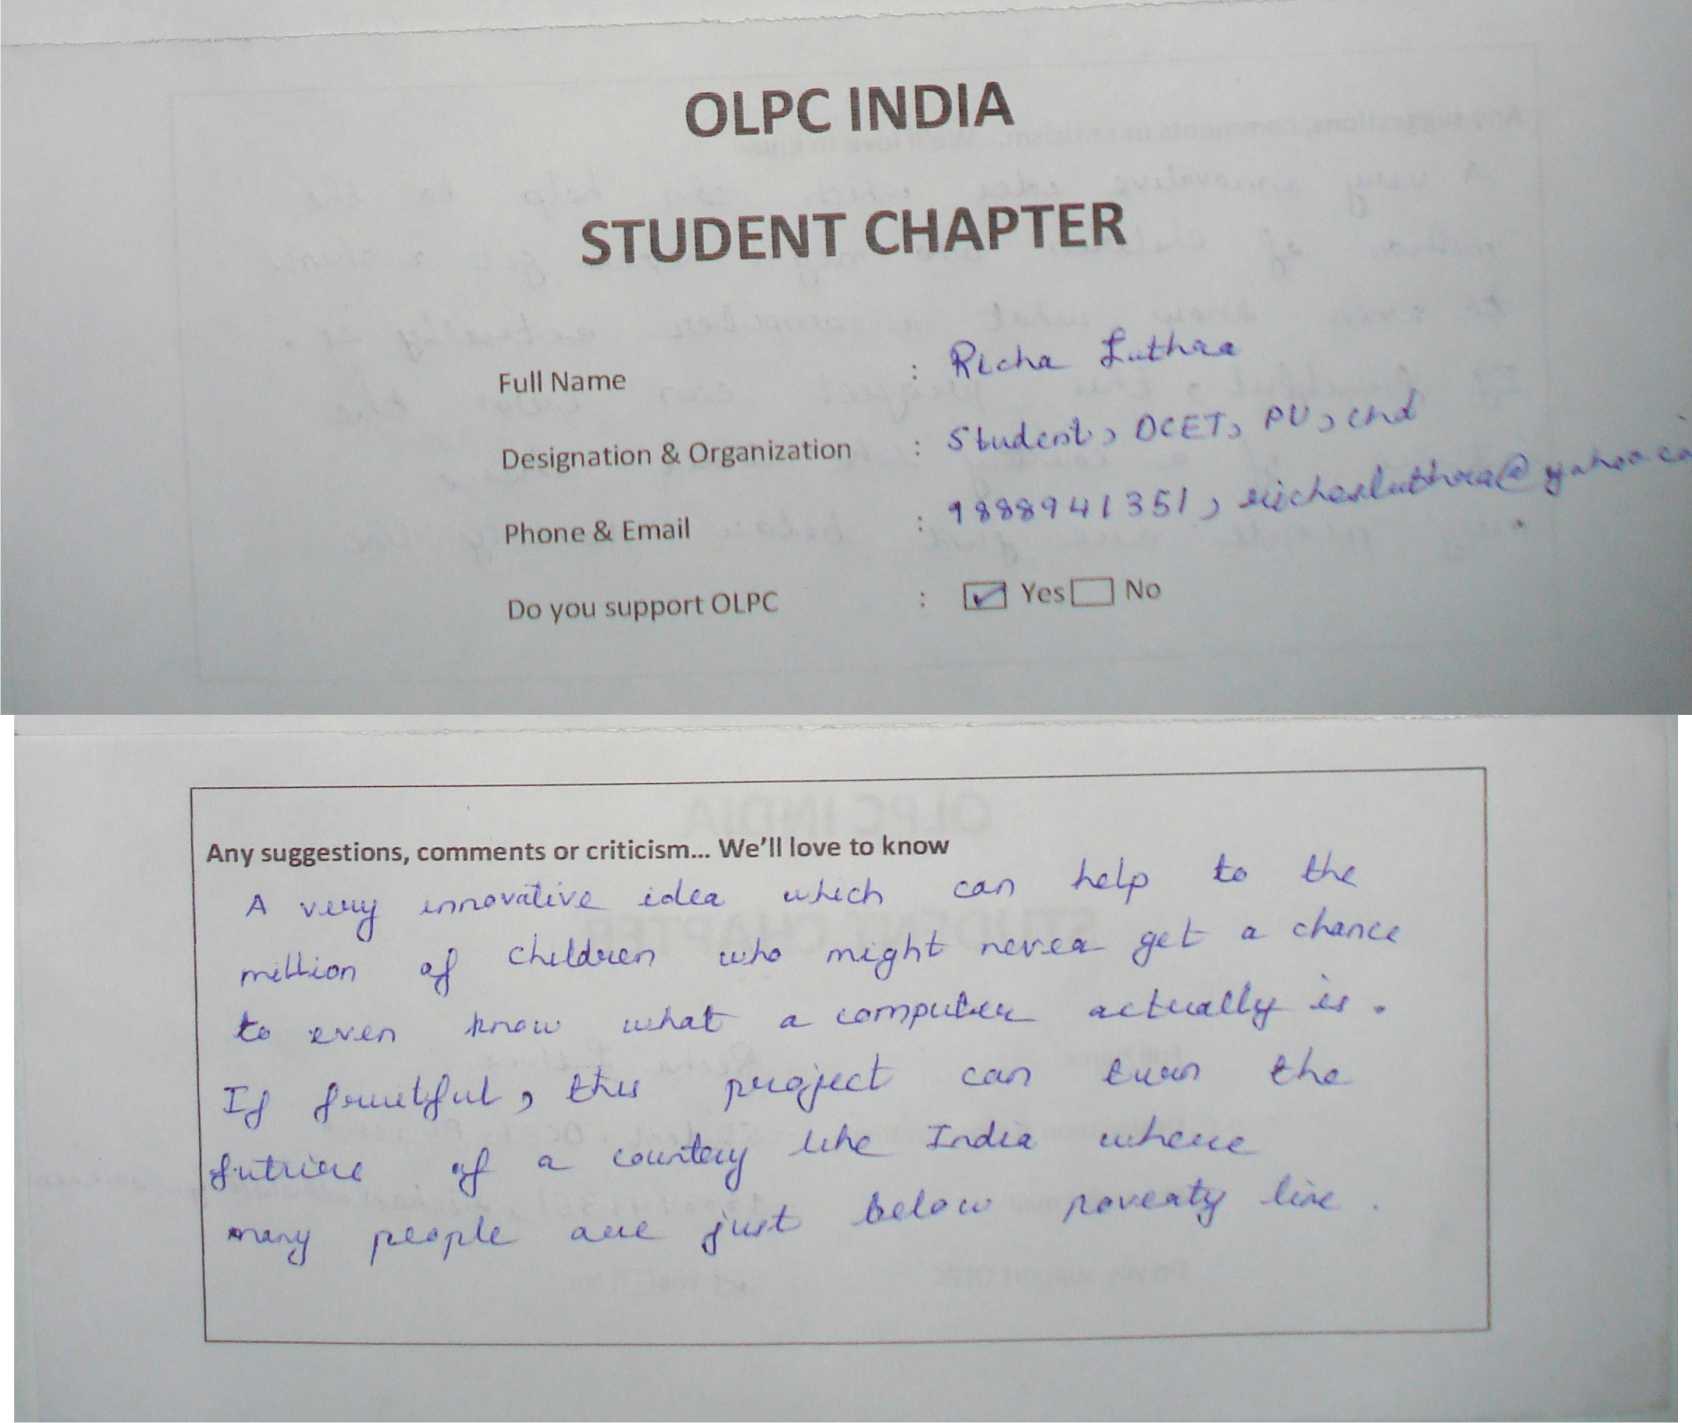 OLPC INDIA
STUDENT CHAPTER
Full Name : Richa Luthra
Designation & Organization : Student, DCET, PU, chd
Phone & Email : 9888941351, richaluthra@yahoo.co
Do you support OLPC : Yes No
Any suggestions, comments or criticism... We'll love to know
A very innovative idea which can help to the
million of children who might never get a chance
to even know what a computer actually is.
If fruitful, this project can turn the
future of a country like India where
many people are just below poverty line.